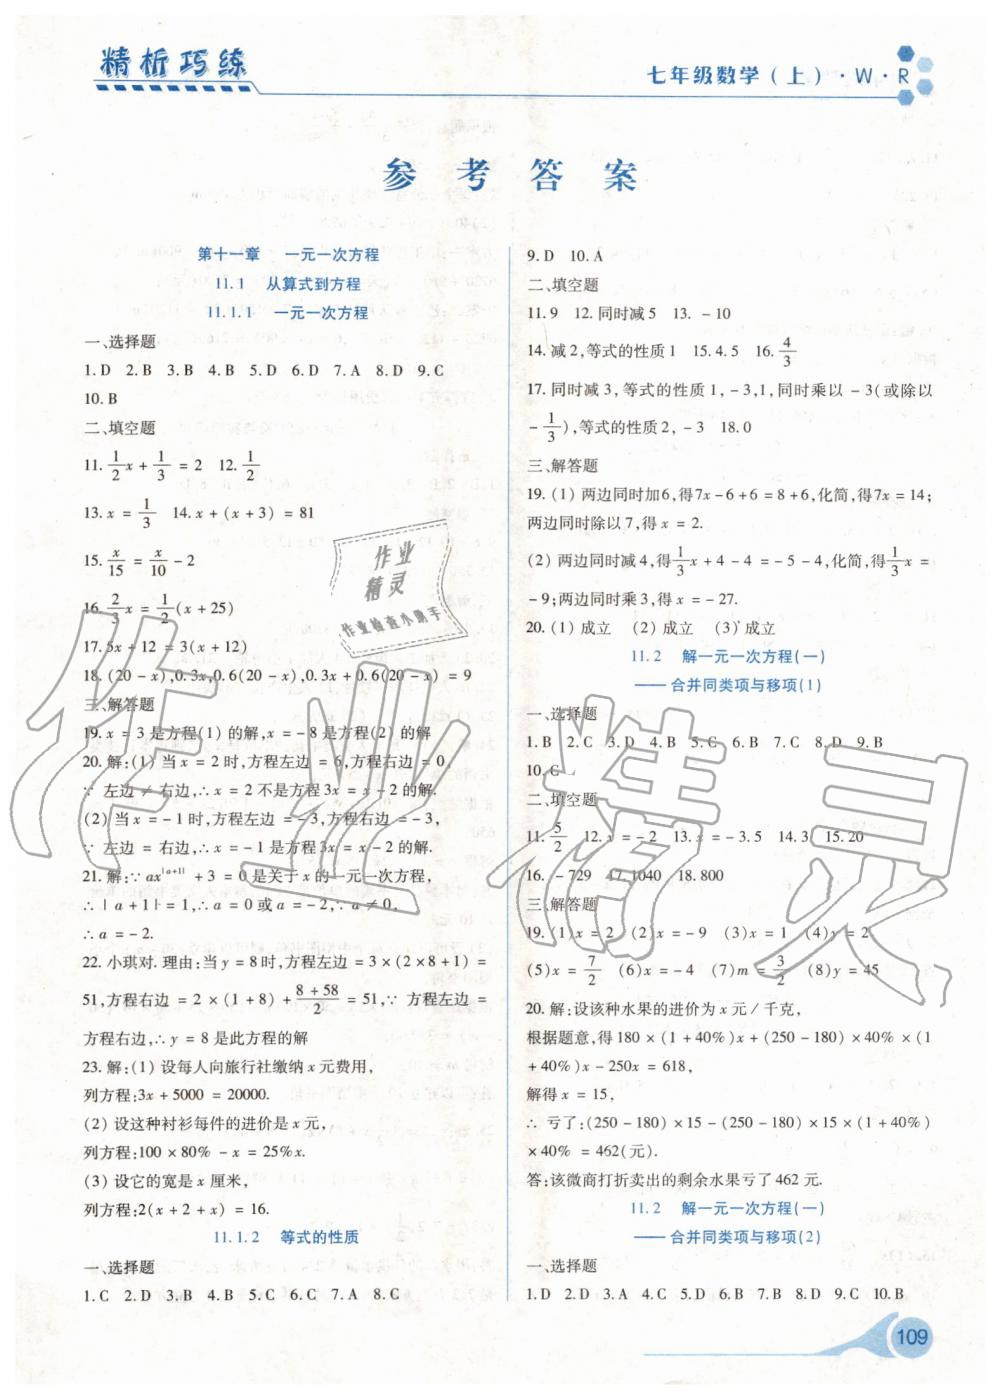 精析巧练
七年级数学(上)·W·R
参考答案
第十一章 一元一次方程
11.1 从算式到方程
11.1.1 一元一次方程
一、选择题
1.D 2.B 3.B 4.B 5.D 6.D 7.A 8.D 9.C
10.B
二、填空题
11. 1/2 x + 1/3 = 2 12. 1/2
13. x = 1/3 14. x + (x + 3) = 81
15. x/15 = x/10 - 2
16. 2/3 x = 1/2 (x + 25)
17. 5x + 12 = 3(x + 12)
18. (20 - x), 0.3x, 0.6(20 - x), 0.3x + 0.6(20 - x) = 9
三、解答题
19. x = 3 是方程(1) 的解, x = -8 是方程(2) 的解
20. 解:(1) 当 x = 2 时,方程左边 = 6,方程右边 = 0,
∵ 左边 ≠ 右边,∴ x = 2 不是方程 3x = x - 2 的解.
(2) 当 x = -1 时,方程左边 = -3,方程右边 = -3,
∵ 左边 = 右边,∴ x = -1 是方程的解.
21. 解:∵ ax^|a+1| + 3 = 0 是关于 x 的一元一次方程,
∴ |a + 1| = 1, ∴ a = 0 或 a = -2, ∵ a ≠ 0,
∴ a = -2.
22. 小琪对. 理由:当 y = 8 时,方程左边 = 3 × (2 × 8 + 1) =
51,方程右边 = 2 × (1 + 8) + (8 + 58)/2 = 51,∵ 方程左边 =
方程右边,∴ y = 8 是此方程的解
23. 解:(1) 设每人向旅行社缴纳 x 元费用,
列方程:3x + 5000 = 20000.
(2) 设这种衬衫每件的进价是 x 元,
列方程:100 × 80% - x = 25%x.
(3) 设它的宽是 x 厘米,
列方程:2(x + 2 + x) = 16.
11.1.2 等式的性质
一、选择题
1.C 2.D 3.B 4.B 5.C 6.C 7.A 8.C
9.D 10.A
二、填空题
11.9 12.同时减 5 13. -10
14. 减 2,等式的性质 1 15.4.5 16. 4/3
17. 同时减 3,等式的性质 1, -3,1,同时乘以 -3(或除以
- 1/3),等式的性质 2, -3 18.0
三、解答题
19. (1) 两边同时加 6,得 7x - 6 + 6 = 8 + 6,化简,得 7x = 14;
两边同时除以 7,得 x = 2.
(2) 两边同时减 4,得 1/3 x + 4 - 4 = -5 - 4,化简,得 1/3 x =
-9;两边同时乘 3,得 x = -27.
20. (1) 成立 (2) 成立 (3) 成立
11.2 解一元一次方程(一)
——合并同类项与移项(1)
一、选择题
1.B 2.C 3.D 4.B 5.C 6.B 7.C 8.D 9.B
10.C
二、填空题
11. 5/2 12. x = -2 13. x = -3.5 14.3 15.20
16. -729 17.1040 18.800
三、解答题
19. (1)x = 2 (2)x = -9 (3)x = 1 (4)y = 2
(5)x = 7/2 (6)x = -4 (7)m = 3/2 (8)y = 45
20. 解:设该种水果的进价为 x 元/千克,
根据题意,得 180 × (1 + 40%)x + (250 - 180) × 40% × (1
+ 40%)x - 250x = 618,
解得 x = 15,
∴ 亏了:(250 - 180) × 15 - (250 - 180) × 15 × (1 + 40%)
× 40% = 462(元).
答:该微商打折卖出的剩余水果亏了 462 元.
11.2 解一元一次方程(一)
——合并同类项与移项(2)
一、选择题
1.D 2.D 3.A 4.C 5.B 6.B 7.D 8.C 9.C 10.B
109
作业
精灵
作业检查小帮手
作业精灵